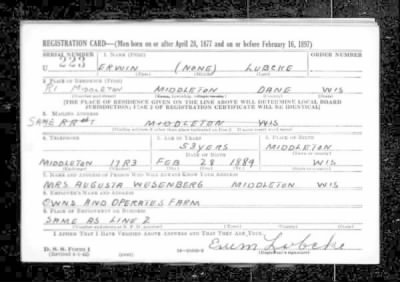 REGISTRATION CARD—(Men born on or after April 28, 1877 and on or before February 16, 1897)
SERIAL NUMBER 1. NAME (Print) ORDER NUMBER
U 223 ERWIN (NONE) LUBCKE
(First) (Middle) (Last)
2. PLACE OF RESIDENCE (Print)
R1 MIDDLETON MIDDLETON DANE WIS
[THE PLACE OF RESIDENCE GIVEN ON THE LINE ABOVE WILL DETERMINE LOCAL BOARD
JURISDICTION; LINE 2 OF REGISTRATION CERTIFICATE WILL BE IDENTICAL]
3. MAILING ADDRESS
SAME RR#1 MIDDLETON WIS
4. TELEPHONE 5. AGE IN YEARS 6. PLACE OF BIRTH
53 YERS MIDDLETON
DATE OF BIRTH
MIDDLETON 17R3 FEB 28 1889 WIS
7. NAME AND ADDRESS OF PERSON WHO WILL ALWAYS KNOW YOUR ADDRESS
MRS AUGUSTA WESENBERG MIDDLETON WIS
8. EMPLOYER'S NAME AND ADDRESS
OWNS AND OPERATES FARM
9. PLACE OF EMPLOYMENT OR BUSINESS
SAME AS LINE 2
I AFFIRM THAT I HAVE VERIFIED ABOVE ANSWERS AND THAT THEY ARE TRUE.
D. S. S. Form 1 Erwin Lubcke